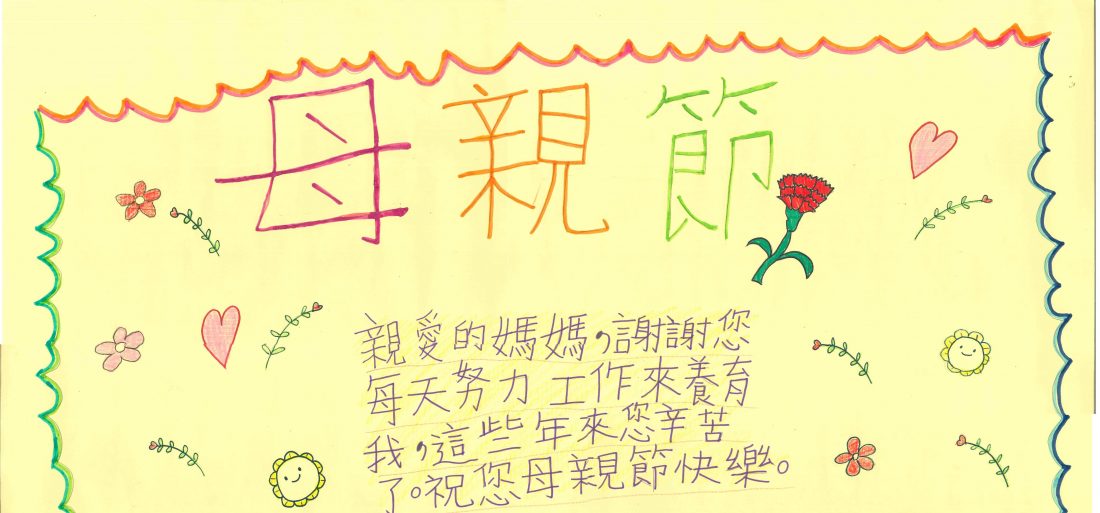 母親節
親愛的媽媽，謝謝您
每天努力工作來養育
我，這些年來您辛苦
了。祝您母親節快樂。